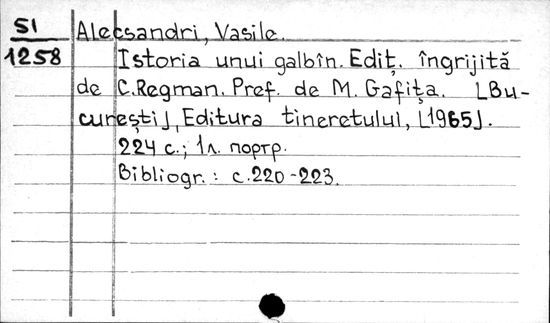 SI
1258
Alecsandri, Vasile.
Istoria unui galbîn. Ediţ. îngrijită
de C. Regman. Pref. de M. Gafiţa. [Bu-
cureşti], Editura tineretului, [1965].
224 с.; 1л. портр.
Bibliogr.: с.220-223.